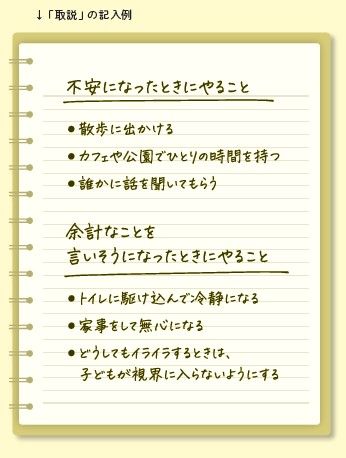 ↓「取説」の記入例
不安になったときにやること
●散歩に出かける
●カフェや公園でひとりの時間を持つ
●誰かに話を聞いてもらう
余計なことを
言いそうになったときにやること
●トイレに駆け込んで冷静になる
●家事をして無心になる
●どうしてもイライラするときは、
子どもが視界に入らないようにする